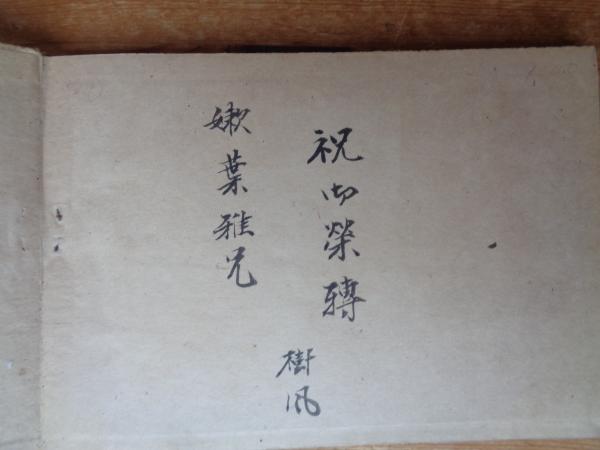 祝御榮轉
嫩葉雅兄
樹風